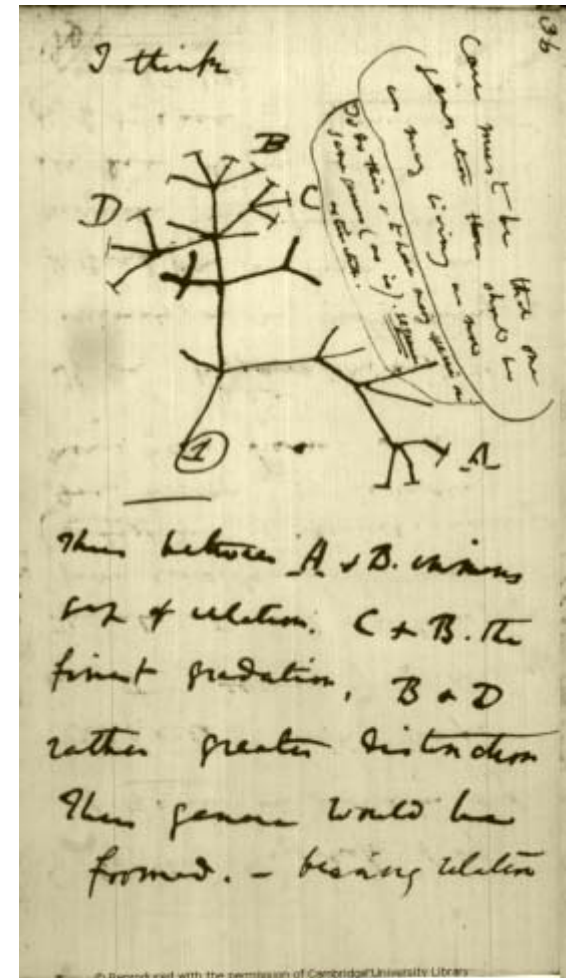 36
I think
Case must be that one
generation then should be
as many living as now
To do this & to have many species in
same genus (as is). requires
extinction.
B
D
C
1
A
Thus between A & B. immens
gap of relation. C & B. the
finest gradation, B & D
rather greater distinction
Thus genera would be
formed. – bearing relation
© Reproduced with the permission of Cambridge University Library